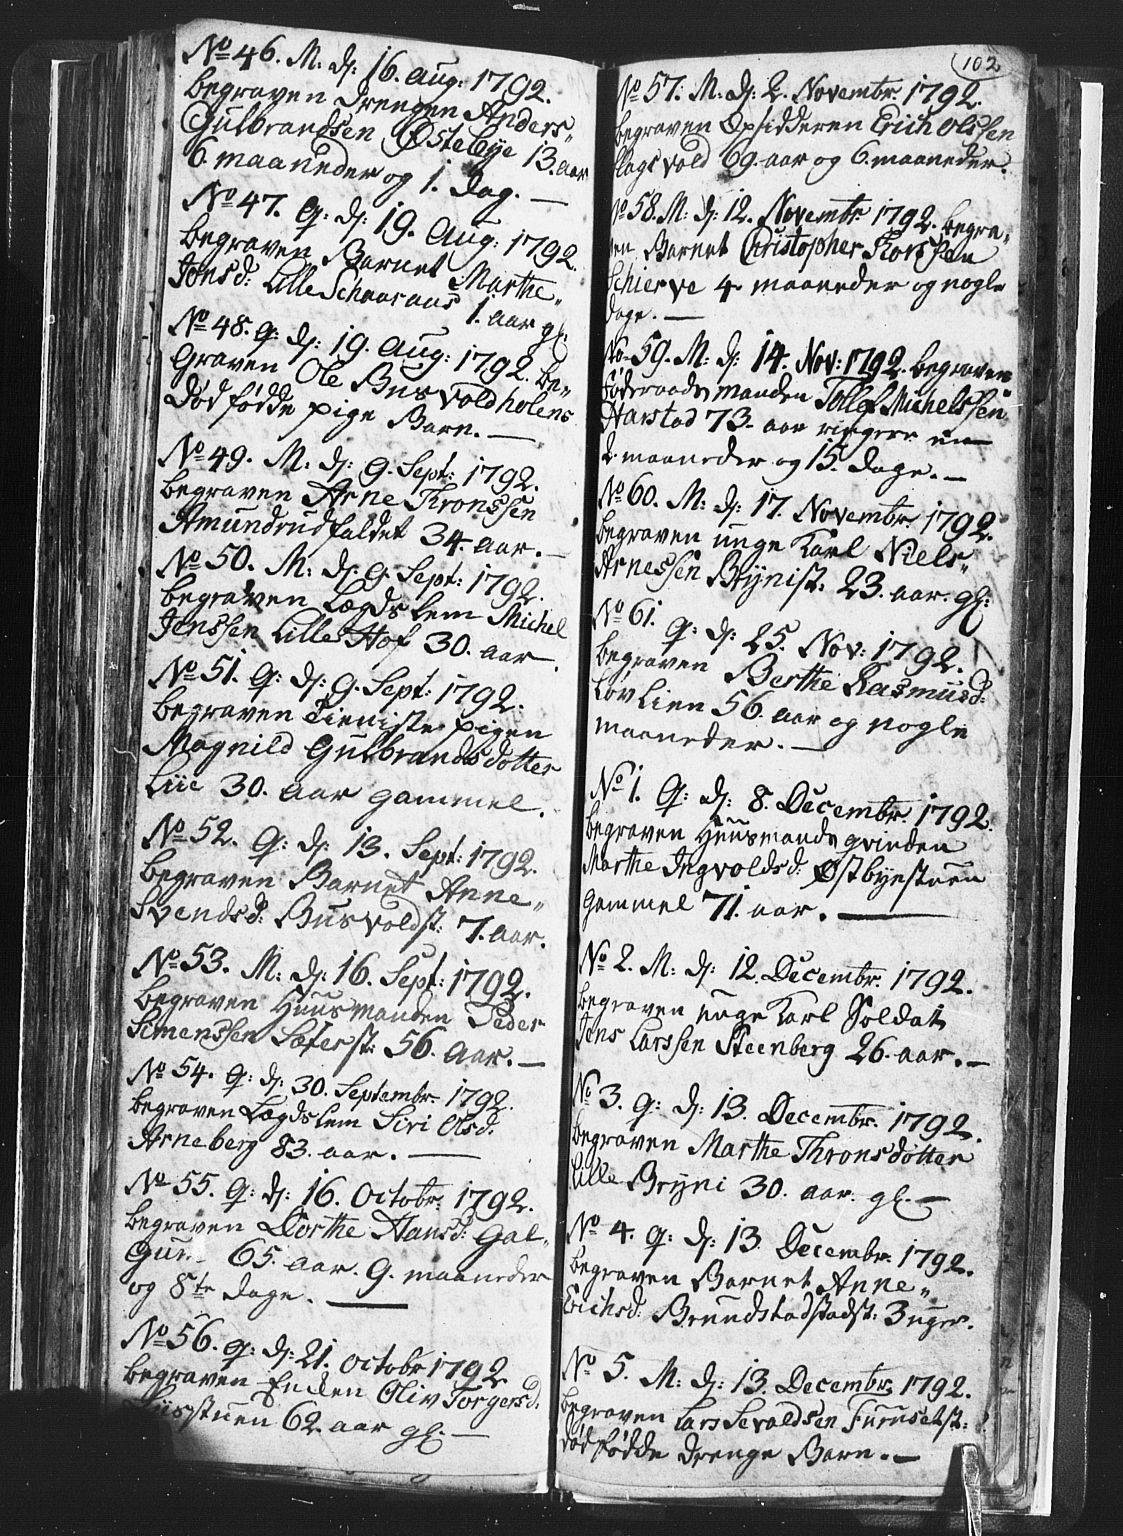 No 46. M: d: 16. Aug: 1792.
begraven Drengen Anders„
Gulbrandsen Østebye 13. aar
6. maaneder og 1. Dag. —
No 47. Q: d: 19. Aug: 1792.
begraven Barnet Marthe„
Jonsd: Lille Schaaraas 1. aar gl:
No 48. Q: d: 19. Aug: 1792. be„
Graven Ole Busvoldholens
Død fødde pige Barn. —
No 49. M: d: 9. Sept: 1792.
begraven Arne Thronssen
Amundrudfaldet 34. aar. —
No 50. M: d: 9. Sept: 1792.
begraven Lægds lem Michel
Jenssen Lille Hof 30. aar.
No 51. Q: d: 9. Sept: 1792.
begraven Tieniste pigen
Magnild Gulbrandsdotter
Liie 30. aar gammel.
No 52. Q: d: 13. Sept: 1792.
begraven Barnet Anne„
Svendsd: Busvoldst: 7. aar.
No 53. M: d: 16. Sept: 1792.
begraven Huusmanden Peder
Simenssen Sæterst: 56. aar. —
No 54. Q: d: 30. Septembr. 1792.
begraven Lægdslem Siri Olsd:
Arneberg 83. aar. —
No 55. Q: d: 16. Octobr: 1792.
begraven Dorthe Hansd: Gal„
65. aar. 9. maaneder
og 8te dage. —
No 56. Q: d: 21. Octobr 1792
begraven Enden Oliv Torgersd.
62. aar gl. —
102
No 57. M: d: 2. Novembr. 1792.
begraven Opsidderen Erich Olssen
Flagsvold 69. aar og 6. maaneder.
No 58. M: d: 12. Novembr. 1792. begra„
ven Barnet Christopher
Schierve 4. maaneder og nogle
dage. —
No 59. M: d: 14. Nov: 1792. begraven
Føderaads manden Tollef Michelssen
Harstad 73. aar ringere en
2. maaneder og 15. dage. —
No 60. M: d: 17. Novembr. 1792.
begraven unge Karl Niels„
Arnessen Brynist: 23. aar. gl:
No 61. Q: d: 25. Nov: 1792.
begraven Berthe Rasmusd:
Løvlien 56. aar og nogle
maaneder. —
No 1. Q: d: 8. Decembr. 1792.
begraven Huusmands qvinden
Marthe Ingvoldsd: Østbyestuen
gammel 71. aar. —
No 2. M: d: 12. Decembr. 1792.
begraven unge Karl Soldat
Jens Larssen Steenberg 26. aar. —
No 3. Q: d: 13. Decembr. 1792.
begraven Marthe Thronsdotter
Lille Bryni 30. aar. gl. —
No 4. Q: d: 13. Decembr. 1792.
begraven Barnet Anne„
Erichsd: Bruudstadstadst: 3 uger.
No 5. M: d: 13. Decembr. 1792.
begraven Lars Sevaldsen Furusetst:
død fødde drenge Barn. —